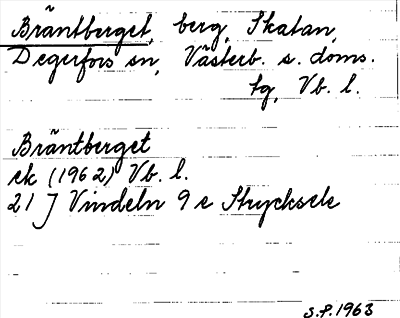 Bräntberget, berg, Skatan,
Degerfors sn, Västerb. s. doms.
tg, Vb. l.
Bräntberget
ek (1962) Vb. l.
21 J Vindeln 9 e Strycksele
S.P. 1963